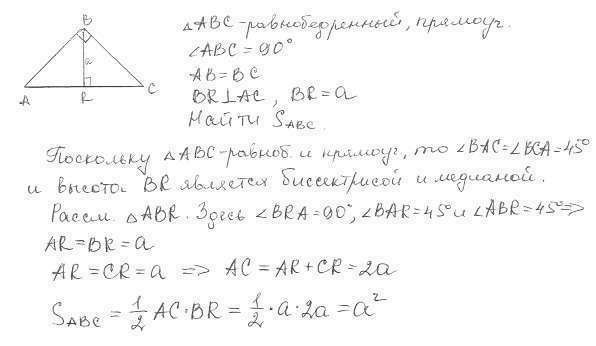 B
a
A R C
△ABC-равнобедренный, прямоуг.
∠ABC = 90°
AB = BC
BR⊥AC, BR = a
Найти S_ABC.
Поскольку △ABC-равноб. и прямоуг, то ∠BAC=∠BCA=45°
и высота BR является биссектрисой и медианой.
Рассм. △ABR. Здесь ∠BRA=90°, ∠BAR=45° и ∠ABR=45° =>
AR = BR = a
AR = CR = a => AC = AR + CR = 2a
S_ABC = 1/2 AC·BR = 1/2 · a · 2a = a²